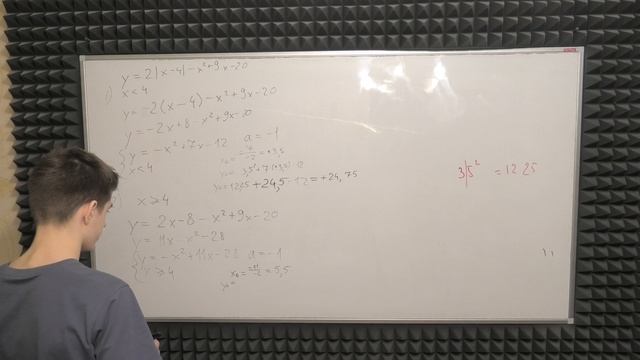 y = 2|x-4| - x²+9x-20
1) x<4
y = -2(x-4) - x²+9x-20
y = -2x+8 - x²+9x-20
{ y = -x²+7x-12 a = -1
x<4
x₀ = -7/-2 = +3,5
3,5²+7·(+3,5)-12
+24,5-12 = +24,75
3|5² = 12 25
) x ⩾ 4
y = 2x-8 - x²+9x-20
y = 11x - x² - 28
{ y = -x² + 11x - 22 a = -1
x ⩾ 4
x₀ = -11/-2 = 5,5
y₀ =